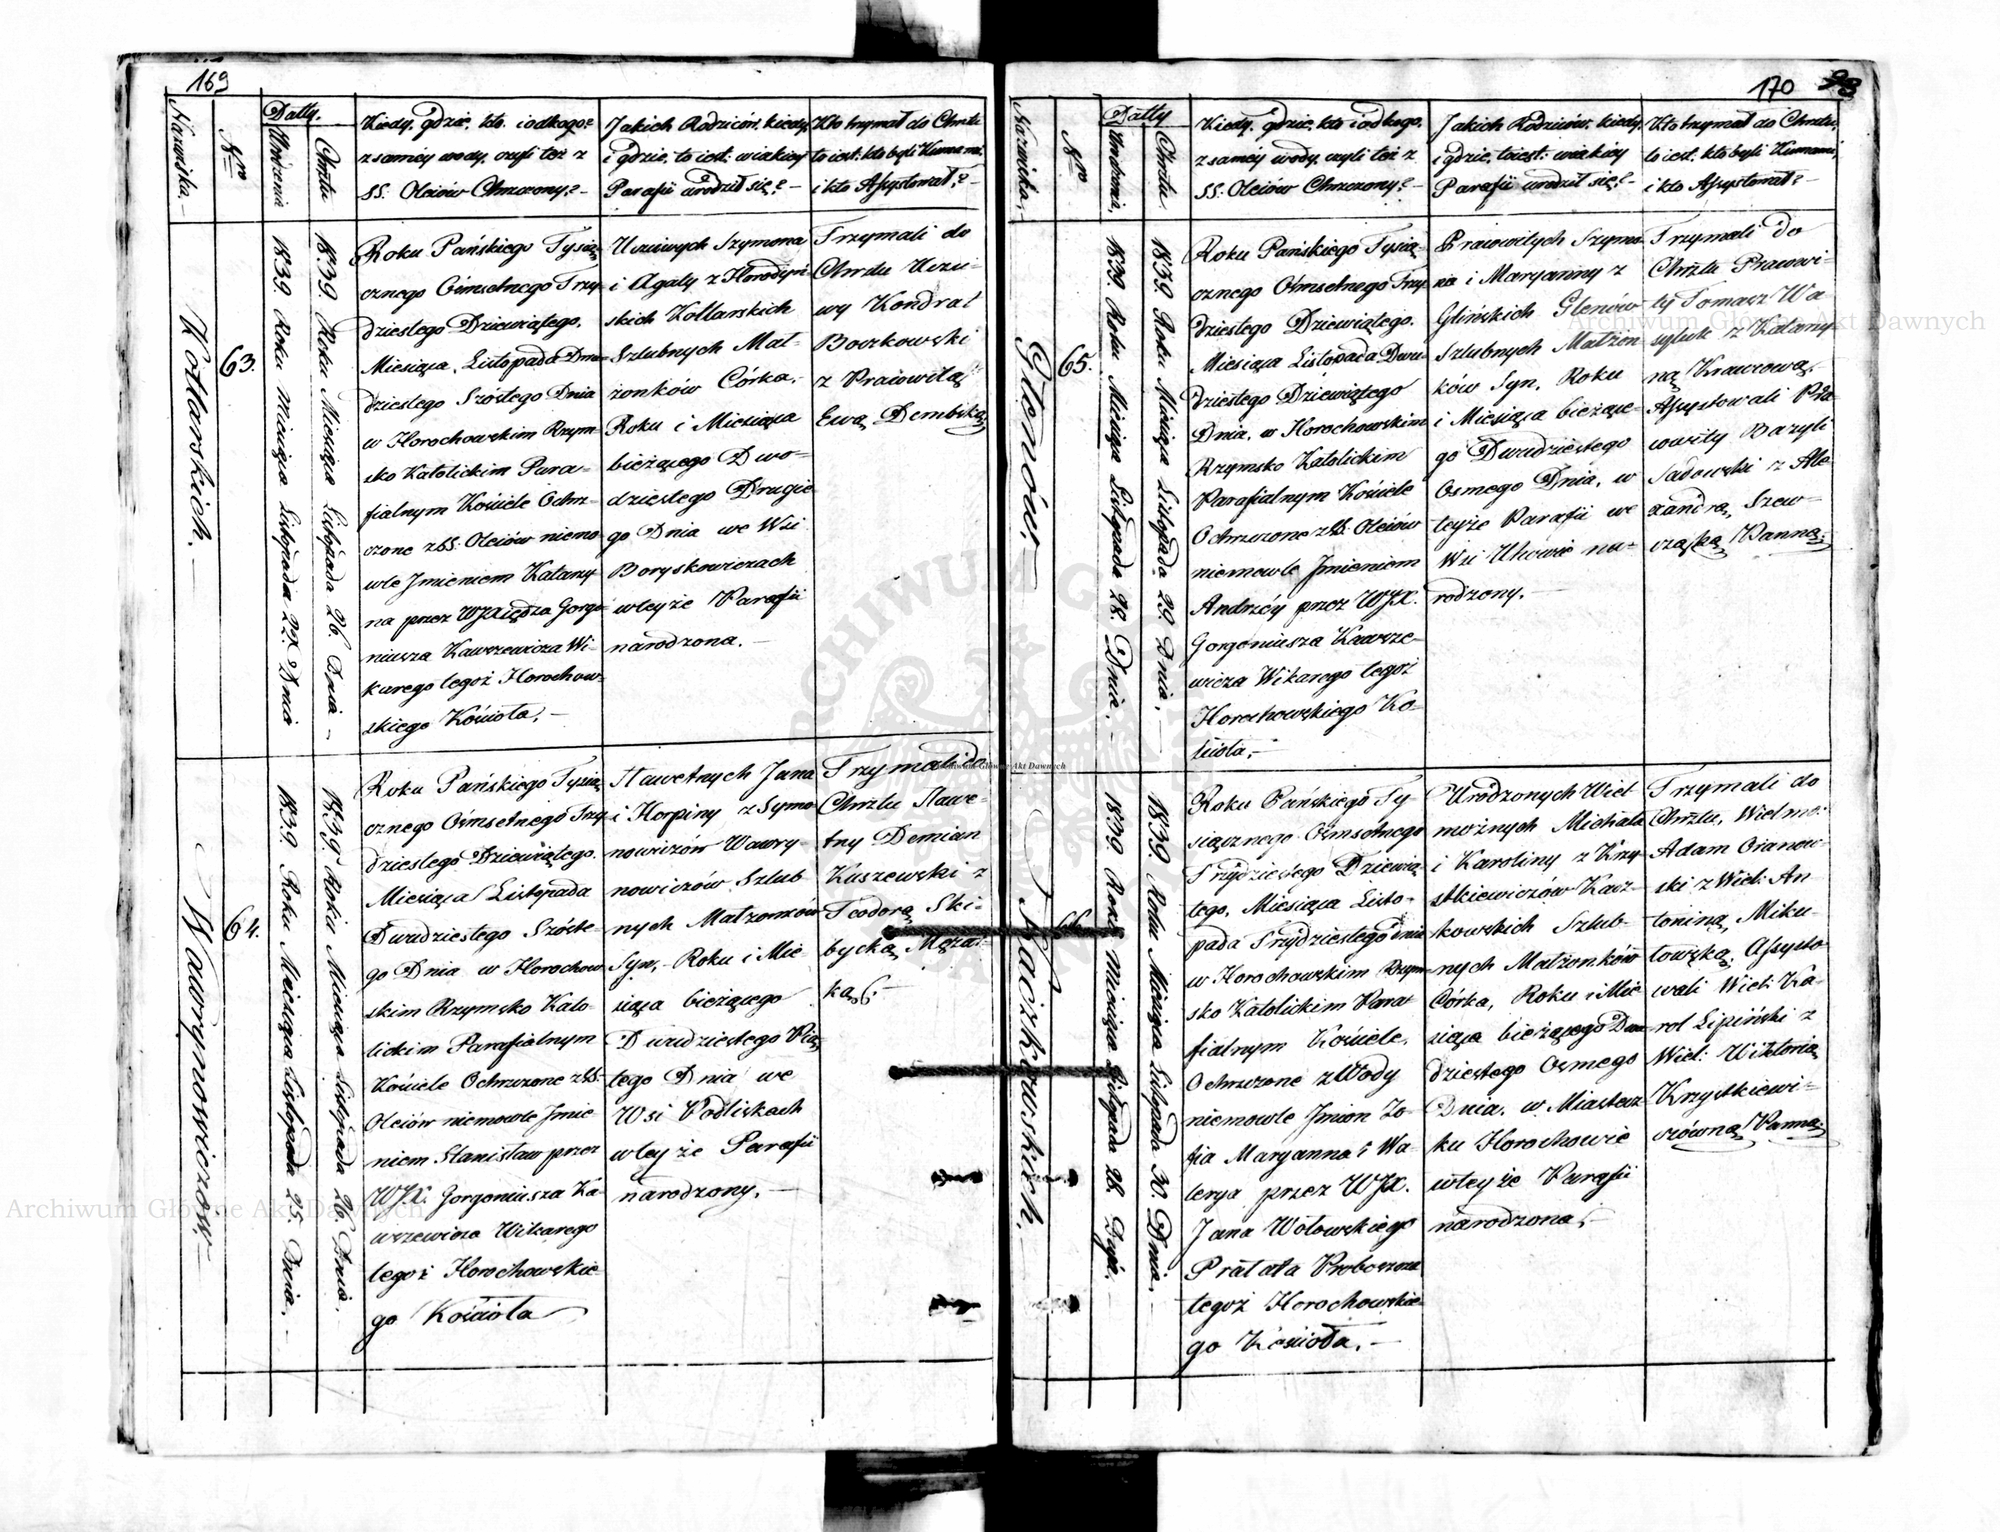 169
Nazwiska.
Nro
Datty.
Urodzenia
Chrztu
Kiedy, gdzie, kto, i od kogo?
z samey wody, czyli też z
SS. Oleiów Chrzczony? –
Jakich Rodziców, kiedy,
i gdzie, to iest: w iakiey
Parafii urodził się? –
Kto trzymał do Chrztu
to iest: kto byli Kumami,
i kto Assystował? –
Kotlarskich. –
63.
1839. Roku Miesiąca Listopada 22. Dnia
1839. Roku Miesiąca Listopada 26. Dnia –
Roku Pańskiego Tysią
cznego Ósmsetnego Trzy
dziestego Dziewiątego,
Miesiąca Listopada Dwu
dziestego Szóstego Dnia
w Horochowskim Rzym
sko Katolickim Para-
fialnym Kościele Ochrz-
czone z SS. Oleiów niemo
wle Jmieniem Katarzy
na przez WJXiędza Gorgo
niusza Kawrzewicza Wi-
karego tegoż Horochow-
skiego Kościoła. –
Uczciwych Szymona
i Agaty z Horodyń
skich Kotlarskich
Szlubnych Mał-
żonków Córka. –
Roku i Miesiąca
bieżącego Dwo-
dziestego Drugie
go Dnia we Wsi
Boryskowiczach
wteyże Parafii
narodzona. –
Trzymali do
Chrztu Uczci-
wy Kondrat
Boczkowski
z Pracowitą
Ewą Dembską
Wawrynowiczów –
64.
1839. Roku Miesiąca Listopada 25. Dnia. –
1839 Roku Miesiąca Listopada 26. Dnia. –
Roku Pańskiego Tysią
cznego Ósmsetnego Trzy
dziestego Dziewiątego.
Miesiąca Listopada
Dwudziestego Szóste-
go Dnia w Horochow
skim Rzymsko Kato-
lickim Parafialnym
Kościele Ochrzczone z SS.
Oleiów niemowle Jmie
niem Stanisław przez
WJX. Gorgoniusza Ka-
wrzewicza Wikarego
tegoż Horochowskie
go Kościoła
Sławetnych Jana
i Horpiny z Symo
nowiczów Wawry-
nowiczów Szlub
nych Małżonków
Syn, – Roku i Mie
siąca bieżącego
Dwudziestego Pią
tego Dnia we
Wsi Podliskach
wteyże Parafii
narodzony. –
Trzymali do
Chrztu Sławe-
tny Demian
Kuszewski z
Teodorą Ski-
bycką Mężat-
ką. –
170
98
Nazwiska. –
Nro
Datty
Urodzenia.
Chrztu
Kiedy, gdzie, kto i od kogo,
z samey wody, czyli też z
SS. Oleiów Chrzczony? –
Jakich Rodziców, kiedy,
i gdzie, to iest: w iakiey
Parafii urodził się? –
Kto trzymał do Chrztu,
to iest: kto byli Kumami,
i kto Assystował? –
Glenów. –
65.
1839. Roku Miesiąca Listopada 28. Dnia. –
1839. Roku Miesiąca Listopada 29. Dnia. –
Roku Pańskiego Tysią-
cznego Ósmsetnego Trzy
dziestego Dziewiątego.
Miesiąca Listopada Dwu-
dziestego Dziewiątego
Dnia, w Horochowskim
Rzymsko Katolickim
Parafialnym Kościele
Ochrzczone z SS. Oleiów
niemowle Jmieniem
Andrzéy przez WJX.
Gorgoniusza Kawrze-
wicza Wikarego tegoż
Horochowskiego Ko-
ścioła. –
Pracowitych Szymo
na i Maryanny z
Glińskich Glenów
Szlubnych Małżon
ków Syn, Roku
i Miesiąca bieżące-
go Dwudziestego
Osmego Dnia, w
teyże Parafii we
Wsi Uhowie na-
rodzony. –
Trzymali do
Chrztu Pracowi-
ty Tomasz Wa
syluk z Katarzy
ną Krawcową,
Assystowali Pra
cowity Bazyli
Sadowski z Ale
xandrą, Szew-
czaską Panną. –
Kaczkowskich. –
66.
1839 Roku Miesiąca Listopada 28. Dnia. –
1839. Roku Miesiąca Listopada 30. Dnia. –
Roku Pańskiego Ty-
siącznego Ósmsetnego
Trzydziestego Dziewią
tego, Miesiąca Listo-
pada Trzydziestego Dnia
w Horochowskim Rzym
sko Katolickim Para
fialnym Kościele,
Ochrzczone z Wody
niemowle Jmion Zo-
fia Maryanna i Wa
lerya przez WJX.
Jana Wołowskiego
Prałata Proboszcza
tegoż Horochowskie-
go Kościoła. –
Urodzonych Wiel
możnych Michała
i Karoliny z Krzy
stkiewiczów Kacz-
kowskich Szlub-
nych Małżonków
Córka, Roku i Mie
siąca bieżącego Dwu
dziestego Osmego
Dnia, w Miastecz
ku Horochowie
wteyże Parafii
narodzona. –
Trzymali do
Chrztu, Wielmo:
Adam Oranow-
ski z Wiel: An
toniną, Miku-
łowską, Assysto
wali Wiel: Ka-
rol Lipiński z
Wiel: Wiktorią
Krzystkiewi-
czówną Panną.
Archiwum Główne Akt Dawnych
Archiwum Główne Akt Dawnych
Archiwum Główne Akt Dawnych